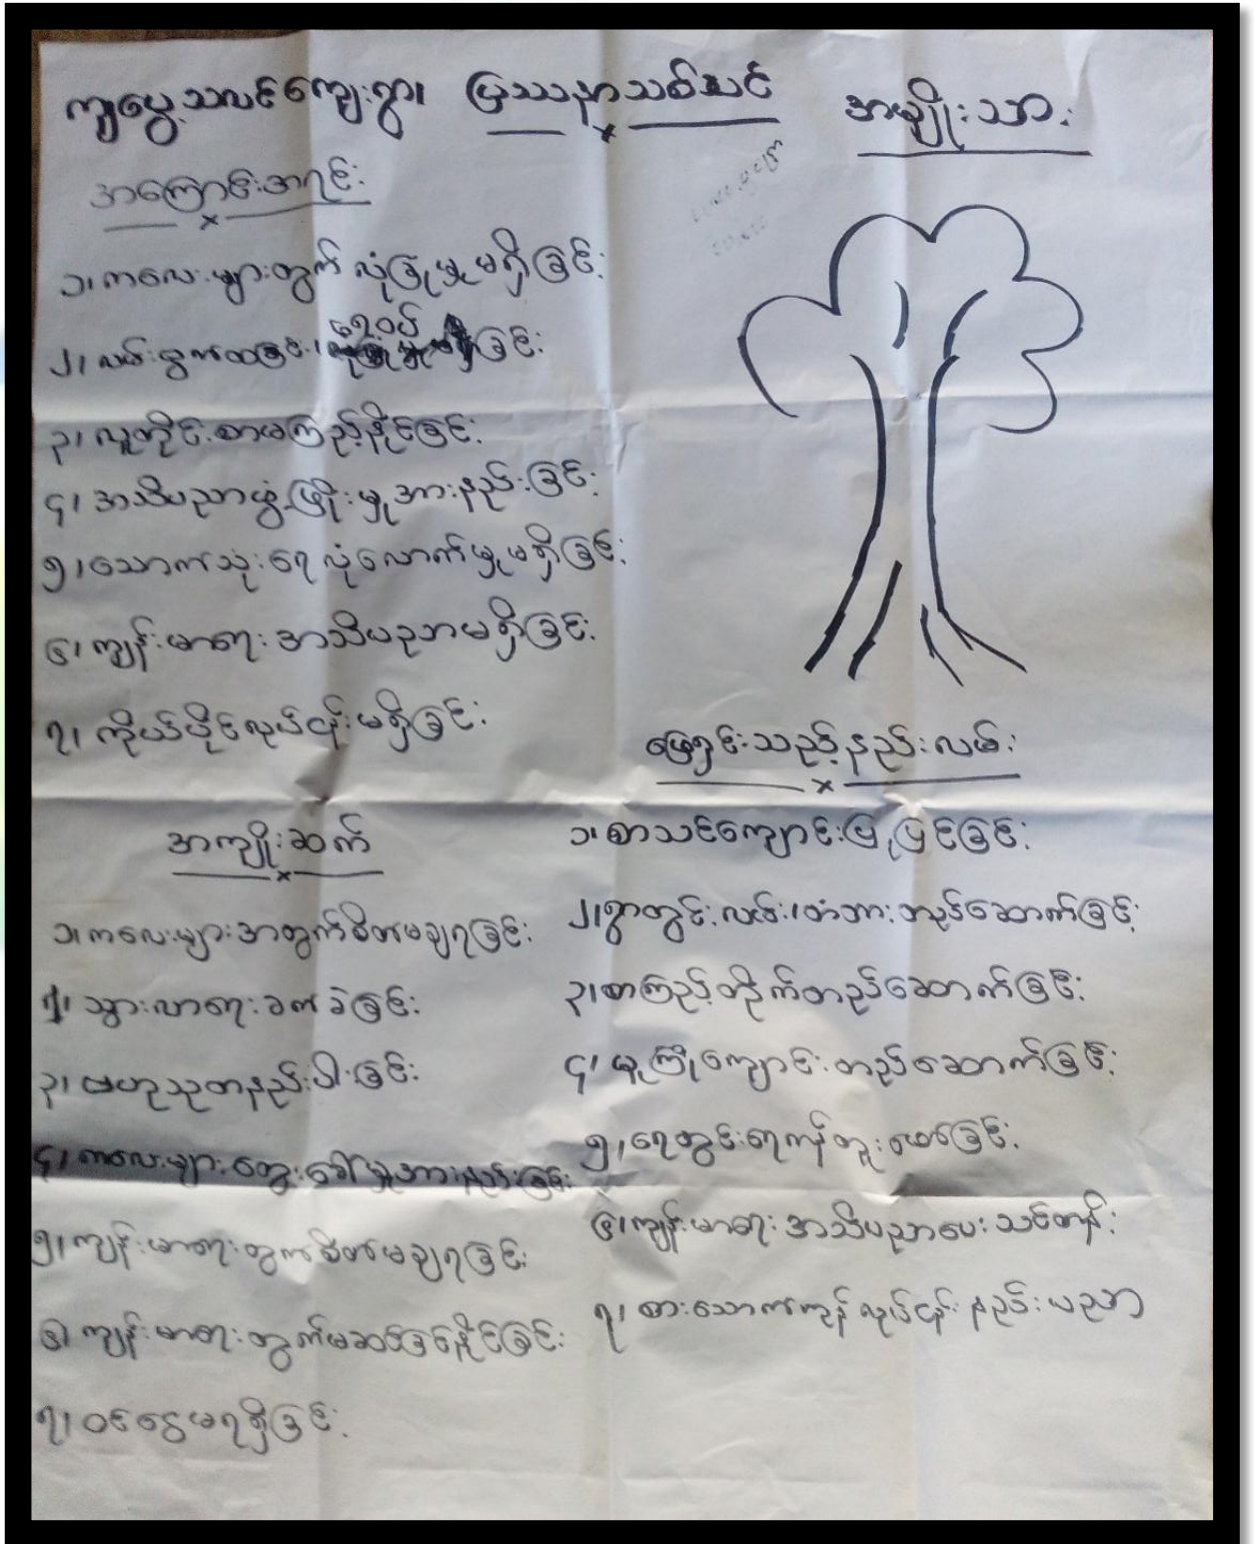 ကျပွေ့သလင်ကျေးရွာ၊ ပြဿနာသစ်ပင် အမျိုးသား
အကြောင်းအရင်း
၁၊ ကလေးများတွက် လုံခြုံမှုမရှိခြင်း
၂၊ လမ်းတွက်ထခြင်း၊ ရေဝပ် ခြင်း
၃၊ လူတိုင်းစာမကြည့်နိုင်ခြင်း
၄၊ အသိပညာဖွံ့ဖြိုးမှုအားနည်းခြင်း
၅၊ သောက်သုံးရေလုံလောက်မှုမရှိခြင်း
၆၊ ကျန်းမာရေးအသိပညာမရှိခြင်း
၇၊ ကိုယ်ပိုင်လုပ်ငန်းမရှိခြင်း
အကျိုးဆက်
၁၊ ကလေးများအတွက်စိတ်မချရခြင်း
၂၊ သွားလာရေးခက်ခဲခြင်း
၃၊ ဗဟုသုတနည်းပါးခြင်း
၄၊ ကလေးများတွေးခေါ်မှုအားနည်းခြင်း
၅၊ ကျန်းမာရေးတွက်စိတ်မချရခြင်း
၆၊ ကျန်းမာရေးတွက်မဆင်ခြင်နိုင်ခြင်း
၇၊ ဝင်ငွေမရရှိခြင်း
ဖြေရှင်းသည့်နည်းလမ်း
၁၊ စာသင်ကျောင်းပြုပြင်ခြင်း
၂၊ ရွာတွင်းလမ်း၊ တံတားလုပ်ဆောက်ခြင်း
၃၊ စာကြည့်တိုက်တည်ဆောက်ခြင်း
၄၊ မူကြိုကျောင်းတည်ဆောက်ခြင်း
၅၊ ရေတွင်းရေကန်တူးဖော်ခြင်း
၆၊ ကျန်းမာရေးအသိပညာပေးသင်တန်း
၇၊ စားသောက်ကုန်လုပ်ငန်းနည်းပညာ